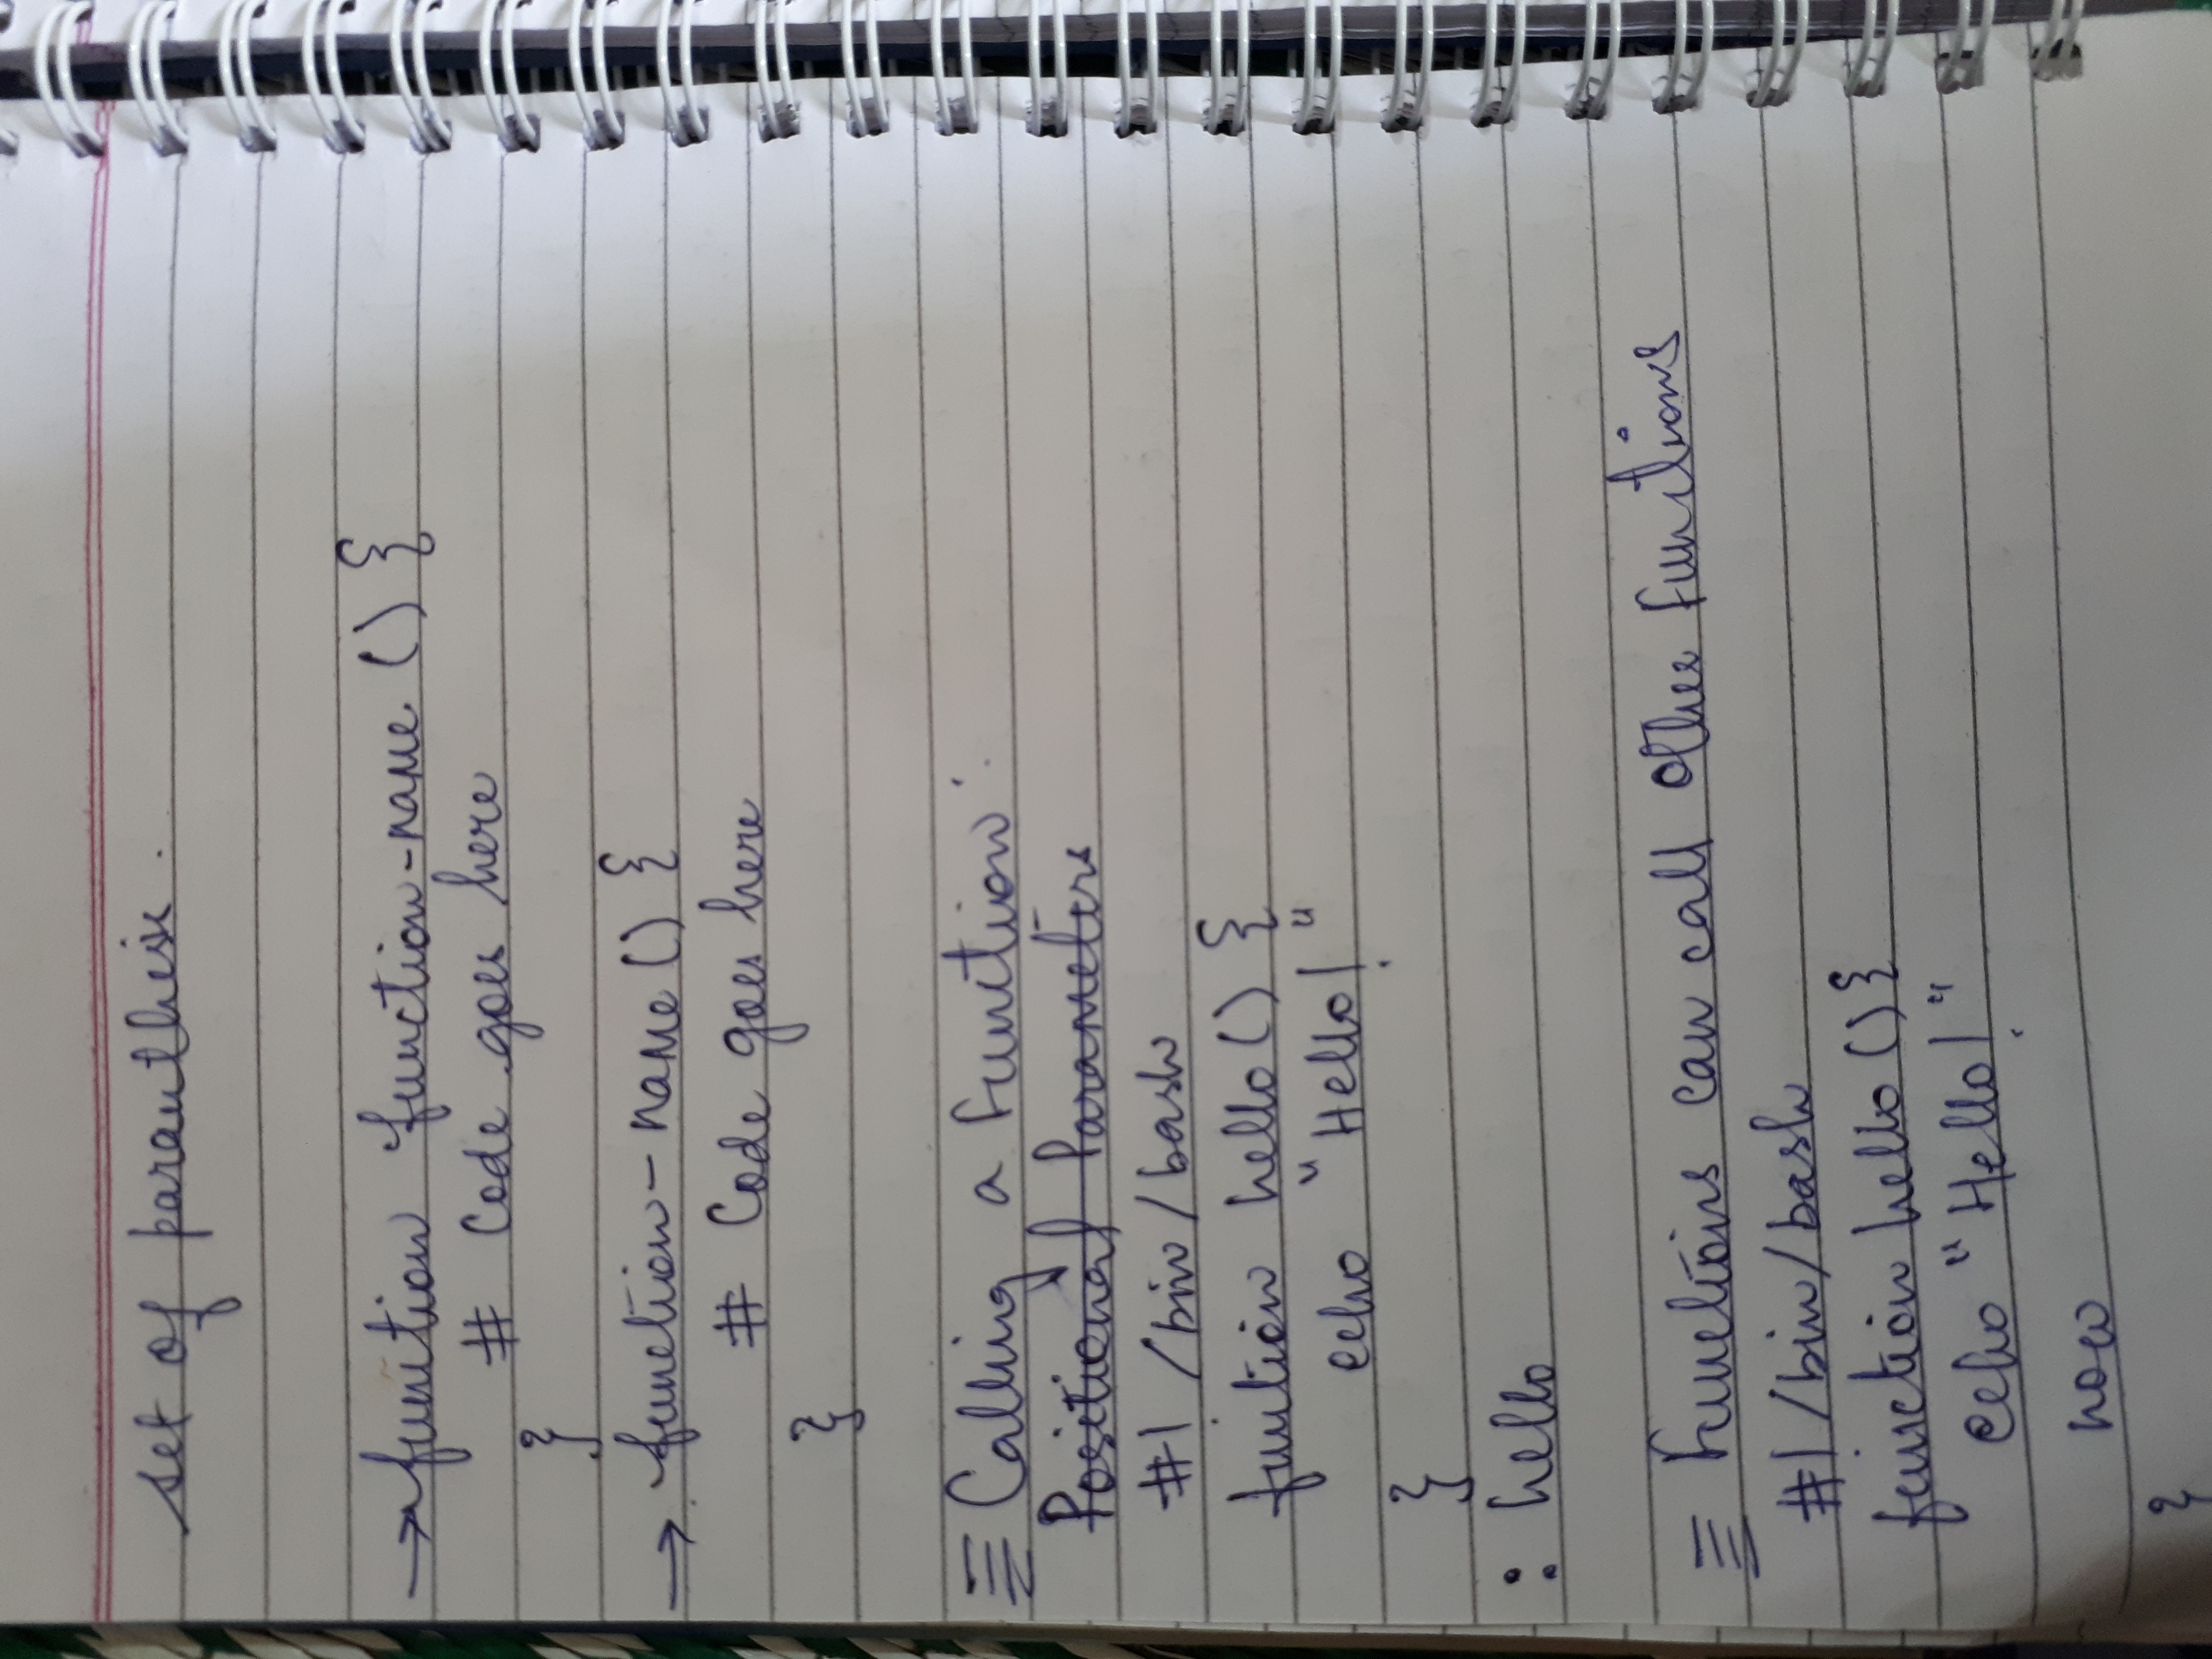 set of paranthesis.
→ function function-name () {
# Code goes here
}
→ function-name () {
# Code goes here
}
≡ Calling a Function:
Positional Parameters
#! /bin/bash
function hello() {
echo "Hello!"
}
: hello
≡ Functions can call other functions
#! /bin/bash
function hello () {
echo "Hello!"
now
}